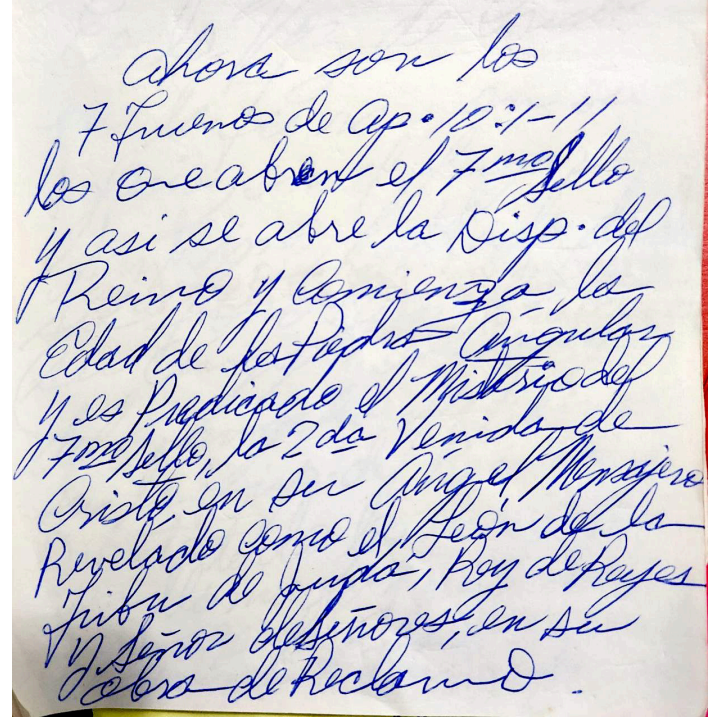 ahora son los
7 Truenos de Ap. 10:1-11
los que abren el 7mo Sello
y asi se abre la Disp. del
Reino y Comienza la
Edad de la Piedra Angular
y es Predicado el Misterio del
7mo Sello, la 2da Venida de
Cristo, en su Angel Mensajero
Revelado como el León de la
Tribu de Juda, Rey de Reyes
y Señor de señores, en su
Obra de Reclamo.